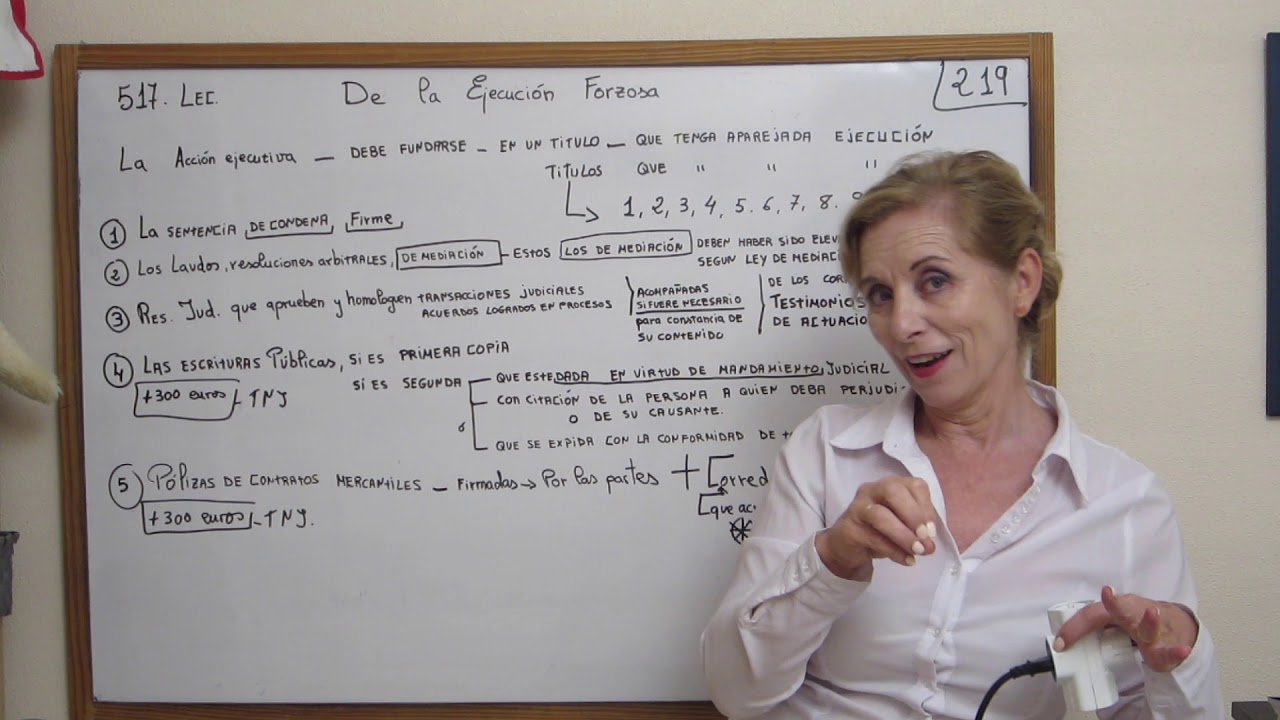 517. LEC. De la Ejecución Forzosa 219
La Acción ejecutiva — DEBE FUNDARSE — EN UN TITULO — QUE TENGA APAREJADA EJECUCIÓN
TITULOS QUE " " "
1, 2, 3, 4, 5. 6, 7, 8.
① La SENTENCIA DE CONDENA, Firme,
② Los Laudos, resoluciones arbitrales, DE MEDIACIÓN — ESTOS LOS DE MEDIACIÓN DEBEN HABER SIDO
SEGUN LEY DE
③ Res. Jud. que aprueben y homologuen TRANSACCIONES JUDICIALES
ACUERDOS LOGRADOS EN PROCESOS
ACOMPAÑADAS
SI FUERE NECESARIO
para constancia de
SU CONTENIDO
DE LOS
TESTIMONIOS
DE
④ LAS ESCRITURAS Públicas, SI ES PRIMERA COPIA
SI ES SEGUNDA
+300 euros - TNJ
QUE ESTE DADA EN VIRTUD DE MANDAMIENTO JUDICIAL
CON CITACIÓN DE LA PERSONA A QUIEN DEBA
O DE SU CAUSANTE.
ó
QUE SE EXPIDA CON LA CONFORMIDAD DE
⑤ PÓLIZAS DE CONTRATOS MERCANTILES — FIRMADAS → Por las partes +
[que
+300 euros - TNJ.